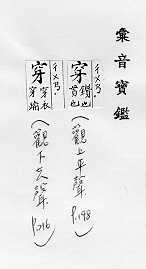 彙音寶鑑
穿 ㄔㄨㄢ 鑽也
(觀上平聲 P.198)
穿 ㄔㄨㄢ 穿衣 穿
(觀下去聲 P.216)